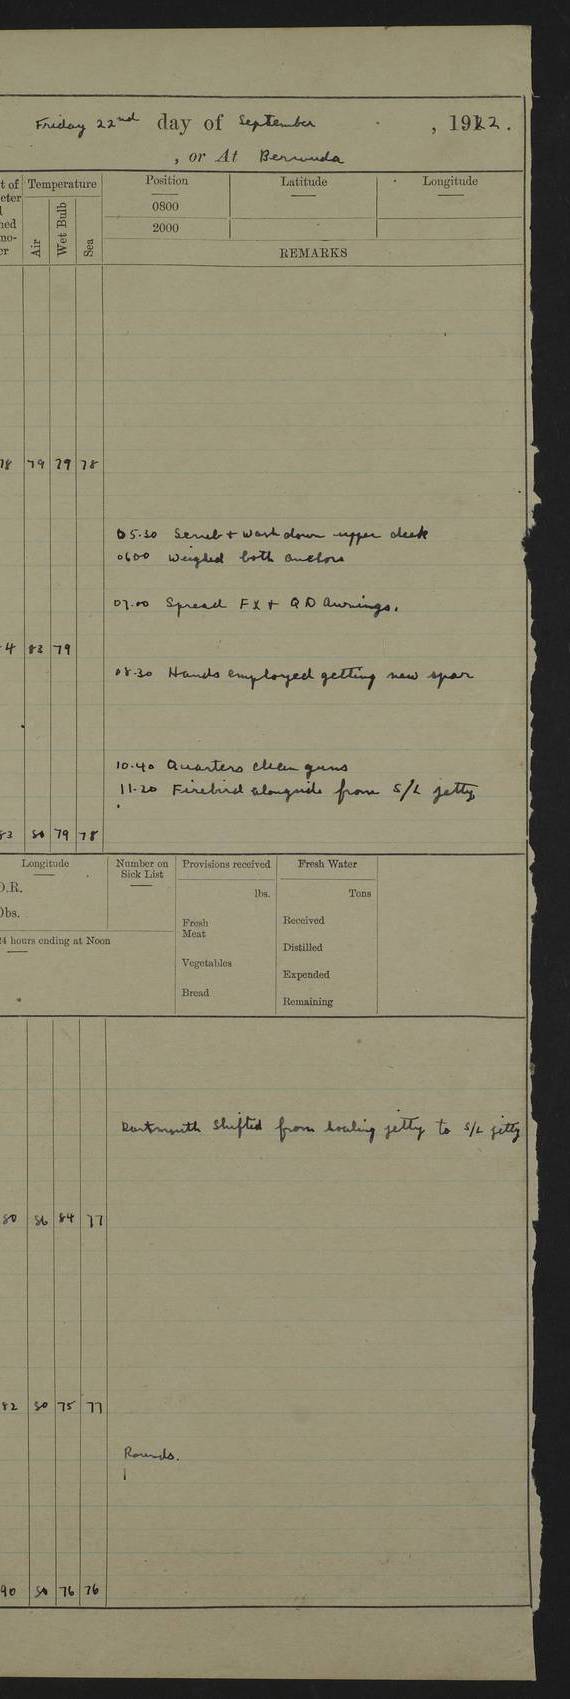 Friday 22nd day of September , 1922.
, or At Bermuda
t of Temperature Position Latitude Longitude
eter
ned 0800
mo- 2000
er Air Wet Bulb Sea REMARKS
78 79 79 78
05.30 Scrub + wash down upper deck
0600 Weighed both anchors
07.00 Spread FX + QD Awnings.
4 83 79
08.30 Hands employed getting new spar
10.40 Quarters clean guns
11.20 Firebird alongside from S/L jetty
83 80 79 78
Longitude Number on Sick List Provisions received Fresh Water
D.R. lbs. Tons
Obs. Fresh Meat Received
24 hours ending at Noon Distilled
Vegetables Expended
Bread Remaining
Dartmouth shifted from coaling jetty to S/L jetty
80 86 84 77
82 80 75 77
Rounds.
90 80 76 76